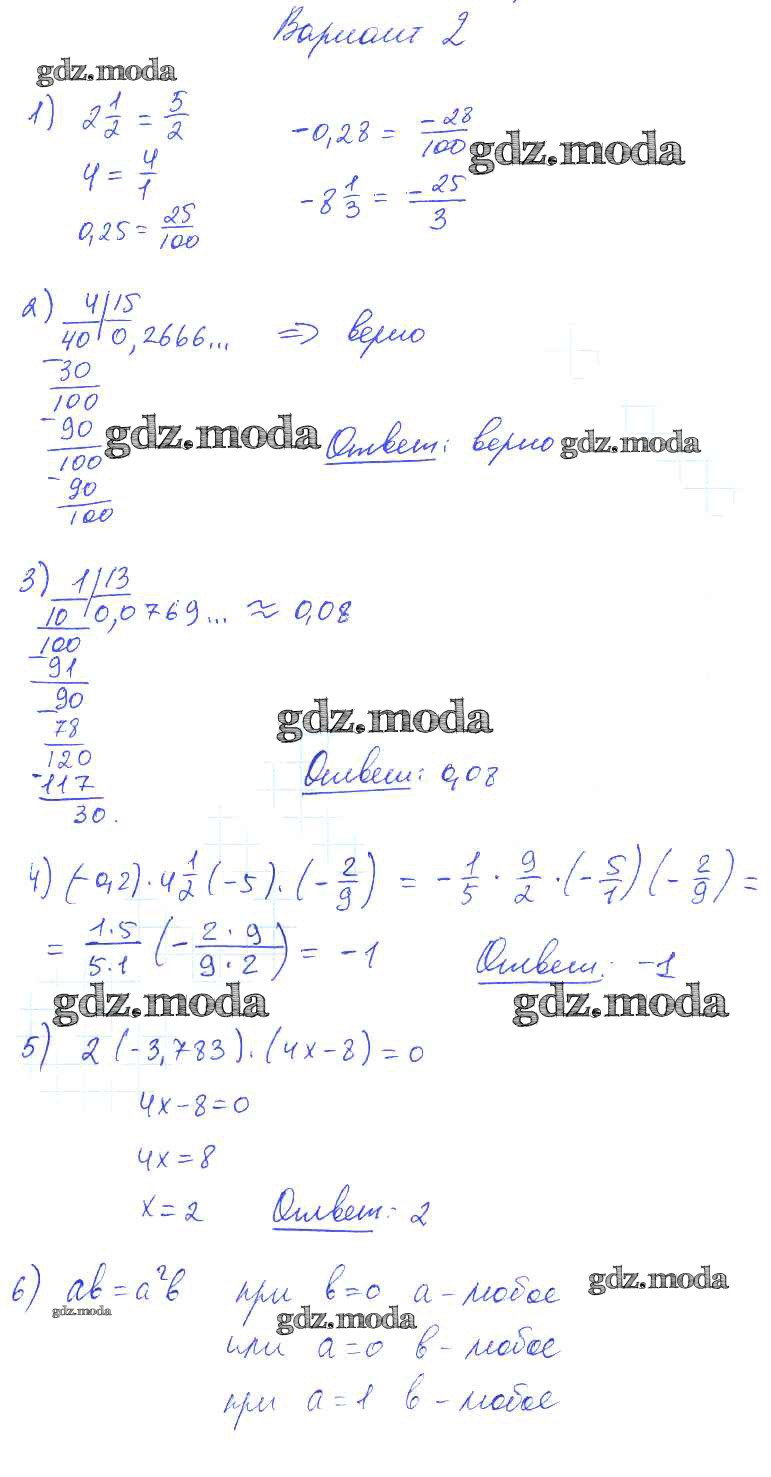 Вариант 2
gdz.moda
1) 2 1/2 = 5/2   -0,28 = -28/100
gdz.moda
4 = 4/1   -8 1/3 = -25/3
0,25 = 25/100
2) 4 | 15
40 | 0,2666... => верно
- 30
100
- 90 gdz.moda Ответ: верно gdz.moda
100
- 90
100
3) 1 | 13
10 | 0,0769... ≈ 0,08
100
- 91
90
- 78 gdz.moda
120 Ответ: 0,08
- 117
30.
4) (-0,2) · 4 1/2 (-5) · (-2/9) = -1/5 · 9/2 · (-5/1) (-2/9) =
= 1·5/5·1 (-2·9/9·2) = -1   Ответ: -1
gdz.moda gdz.moda
5) 2 (-3,783) · (4x-8) = 0
4x-8=0
4x=8
x=2   Ответ: 2
6) ab = a²b   при b=0 a - любое gdz.moda
gdz.moda gdz.moda
или a=0 b - любое
при a=1 b - любое